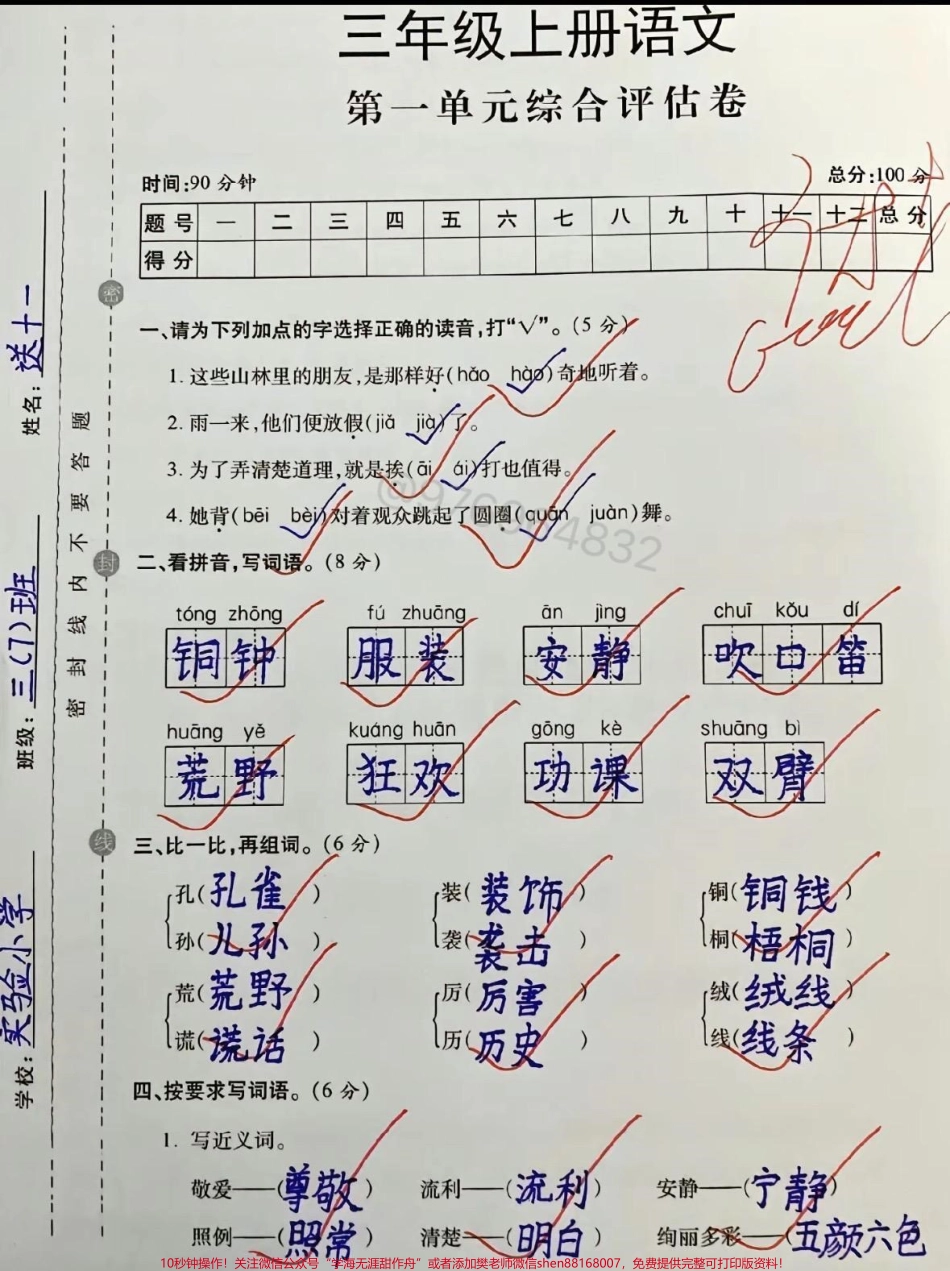 三年级上册语文
第一单元综合评估卷
时间:90分钟 总分:100分
题号 一 二 三 四 五 六 七 八 九 十 十一 十二 总分
得分
一、请为下列加点的字选择正确的读音,打“√”。(5分)
1. 这些山林里的朋友,是那样好(hǎo hào)奇地听着。
2. 雨一来,他们便放假(jiǎ jià)了。
3. 为了弄清楚道理,就是挨(āi ái)打也值得。
4. 她背(bēi bèi)对着观众跳起了圆圈(quān juàn)舞。
二、看拼音,写词语。(8分)
tóng zhōng fú zhuāng ān jìng chuī kǒu dí
铜钟 服装 安静 吹口笛
huāng yě kuáng huān gōng kè shuāng bì
荒野 狂欢 功课 双臂
三、比一比,再组词。(6分)
孔(孔雀) 装(装饰) 铜(铜钱)
孙(儿孙) 袭(袭击) 桐(梧桐)
荒(荒野) 厉(厉害) 绒(绒线)
谎(谎话) 历(历史) 线(线条)
四、按要求写词语。(6分)
1. 写近义词。
敬爱——(尊敬) 流利——(流利) 安静——(宁静)
照例——(照常) 清楚——(明白) 绚丽多彩——(五颜六色
10秒钟操作!关注微信公众号“学海无涯甜作舟”或者添加樊老师微信shen88168007,免费提供完整可打印版资料!
学校:实验小学 班级:三(7)班 姓名:送十一
密封线内不要答题
密 封 线